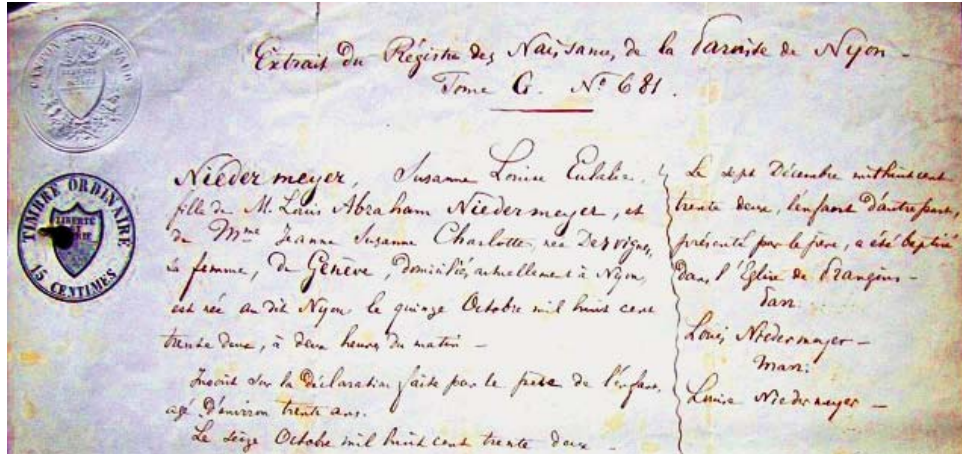 CANTON DE VAUD
LIBERTÉ
ET
PATRIE
TIMBRE ORDINAIRE
LIBERTÉ
15 CENTIMES
Extrait du Régistre des Naissances, de la Paroisse de Nyon -
Tome G. N° 681.
Niedermeyer, Susanne Louise Eulalie,
fille de M. Louis Abraham Niedermeyer, et
de Mme Jeanne Susanne Charlotte, née Desvignes,
sa femme, de Genève, domiciliés actuellement à Nyon,
est née au dit Nyon le quinze Octobre mil huit cent
trente deux, à deux heures du matin -
Inscrit sur la déclaration faite par le père de l'enfant,
agé d'environ trente ans.
Le seize Octobre mil huit cent trente deux -
Le sept Décembre mil huit cent
trente deux, l'enfant d'autre part,
présenté par le père, a été baptisé
dans l'Eglise de Prangins -
Parr:
Louis Niedermeyer -
Marr:
Louise Niedermeyer -